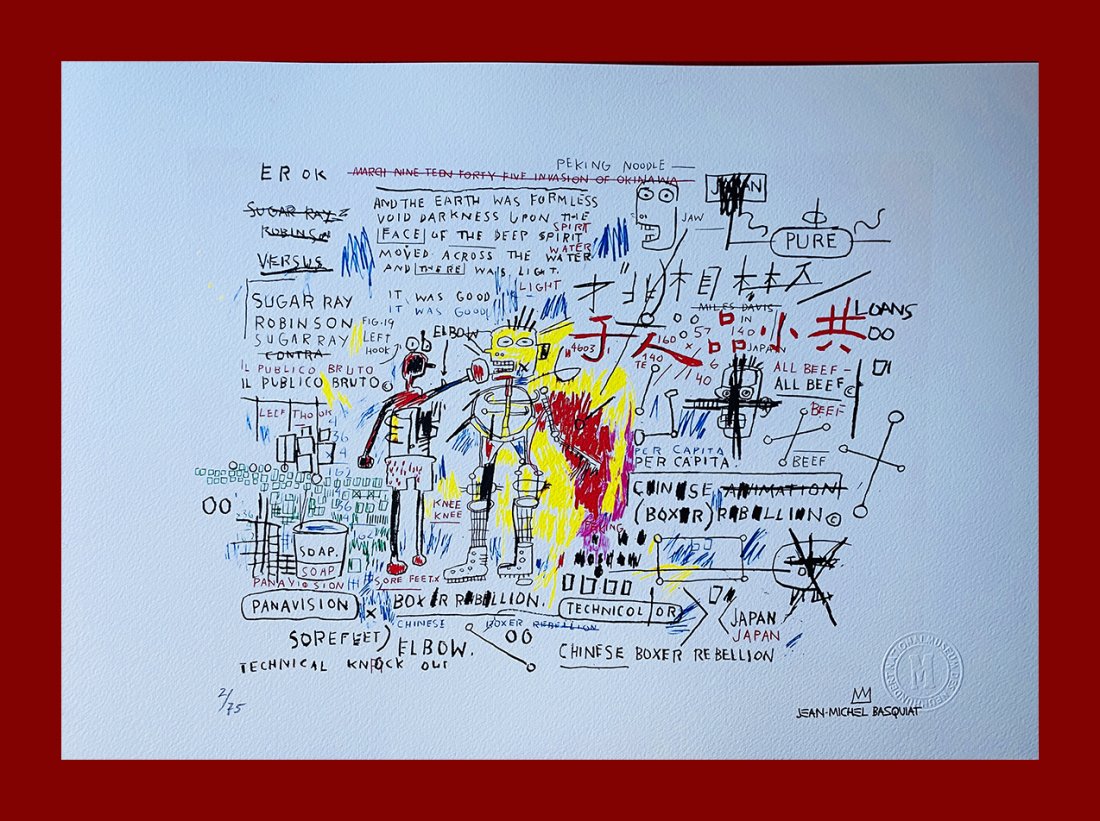 EROK
MARCH NINE TEEN FORTY FIVE INVASION OF OKINAWA
PEKING NOODLE
SUGAR RAY
ROBINSON
VERSUS
AND THE EARTH WAS FORMLESS
VOID DARKNESS UPON THE
FACE OF THE DEEP SPIRIT
SPIRIT
MOVED ACROSS THE WATER
WATER
AND THERE WAS LIGHT.
LIGHT
IT WAS GOOD
IT WAS GOOD
JAW
JAPAN
PURE
SUGAR RAY
ROBINSON
SUGAR RAY
CONTRA
IL PUBLICO BRUTO
IL PUBLICO BRUTO©
FIG.19
LEFT
HOOK
ELBOW
MILES DAVIS
IN
140
JAPAN
于人品小共
LOANS
4603
57
160
140
TE
6
40
ALL BEEF-
ALL BEEF©
BEEF
BEEF
PER CAPITA
PER CAPITA.
CHINESE ANIMATION
(BOXER) REBELLION©
KNEE
KNEE
PEKING
SOAP.
SOAP
PANAVISION
PANAVISION
SORE FEET X
BOXER REBELLION.
CHINESE BOXER REBELLION
TECHNICOLOR
JAPAN
JAPAN
SOREFEET)
ELBOW.
TECHNICAL KNOCK OUT
CHINESE BOXER REBELLION
2/75
JEAN-MICHEL BASQUIAT
M